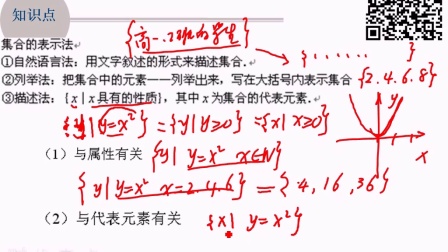 知识点
{高一.2班的学生}
集合的表示法
①自然语言法：用文字叙述的形式来描述集合.
{......}
②列举法：把集合中的元素一一列举出来，写在大括号内表示集合 {2.4.6.8}
③描述法：{x|x具有的性质}，其中x为集合的代表元素.
{y|y=x²}={y|y≥0}={x|x≥0}
y
（1）与属性有关 {y|y=x² x∈N}
x
{y|y=x² x=2.4.6}={4,16,36}
（2）与代表元素有关 {x| y=x²}